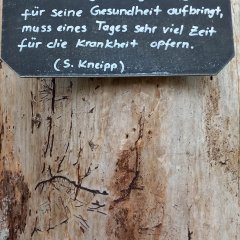 für seine Gesundheit aufbringt,
muss eines Tages sehr viel Zeit
für die Krankheit opfern.
(S. Kneipp)